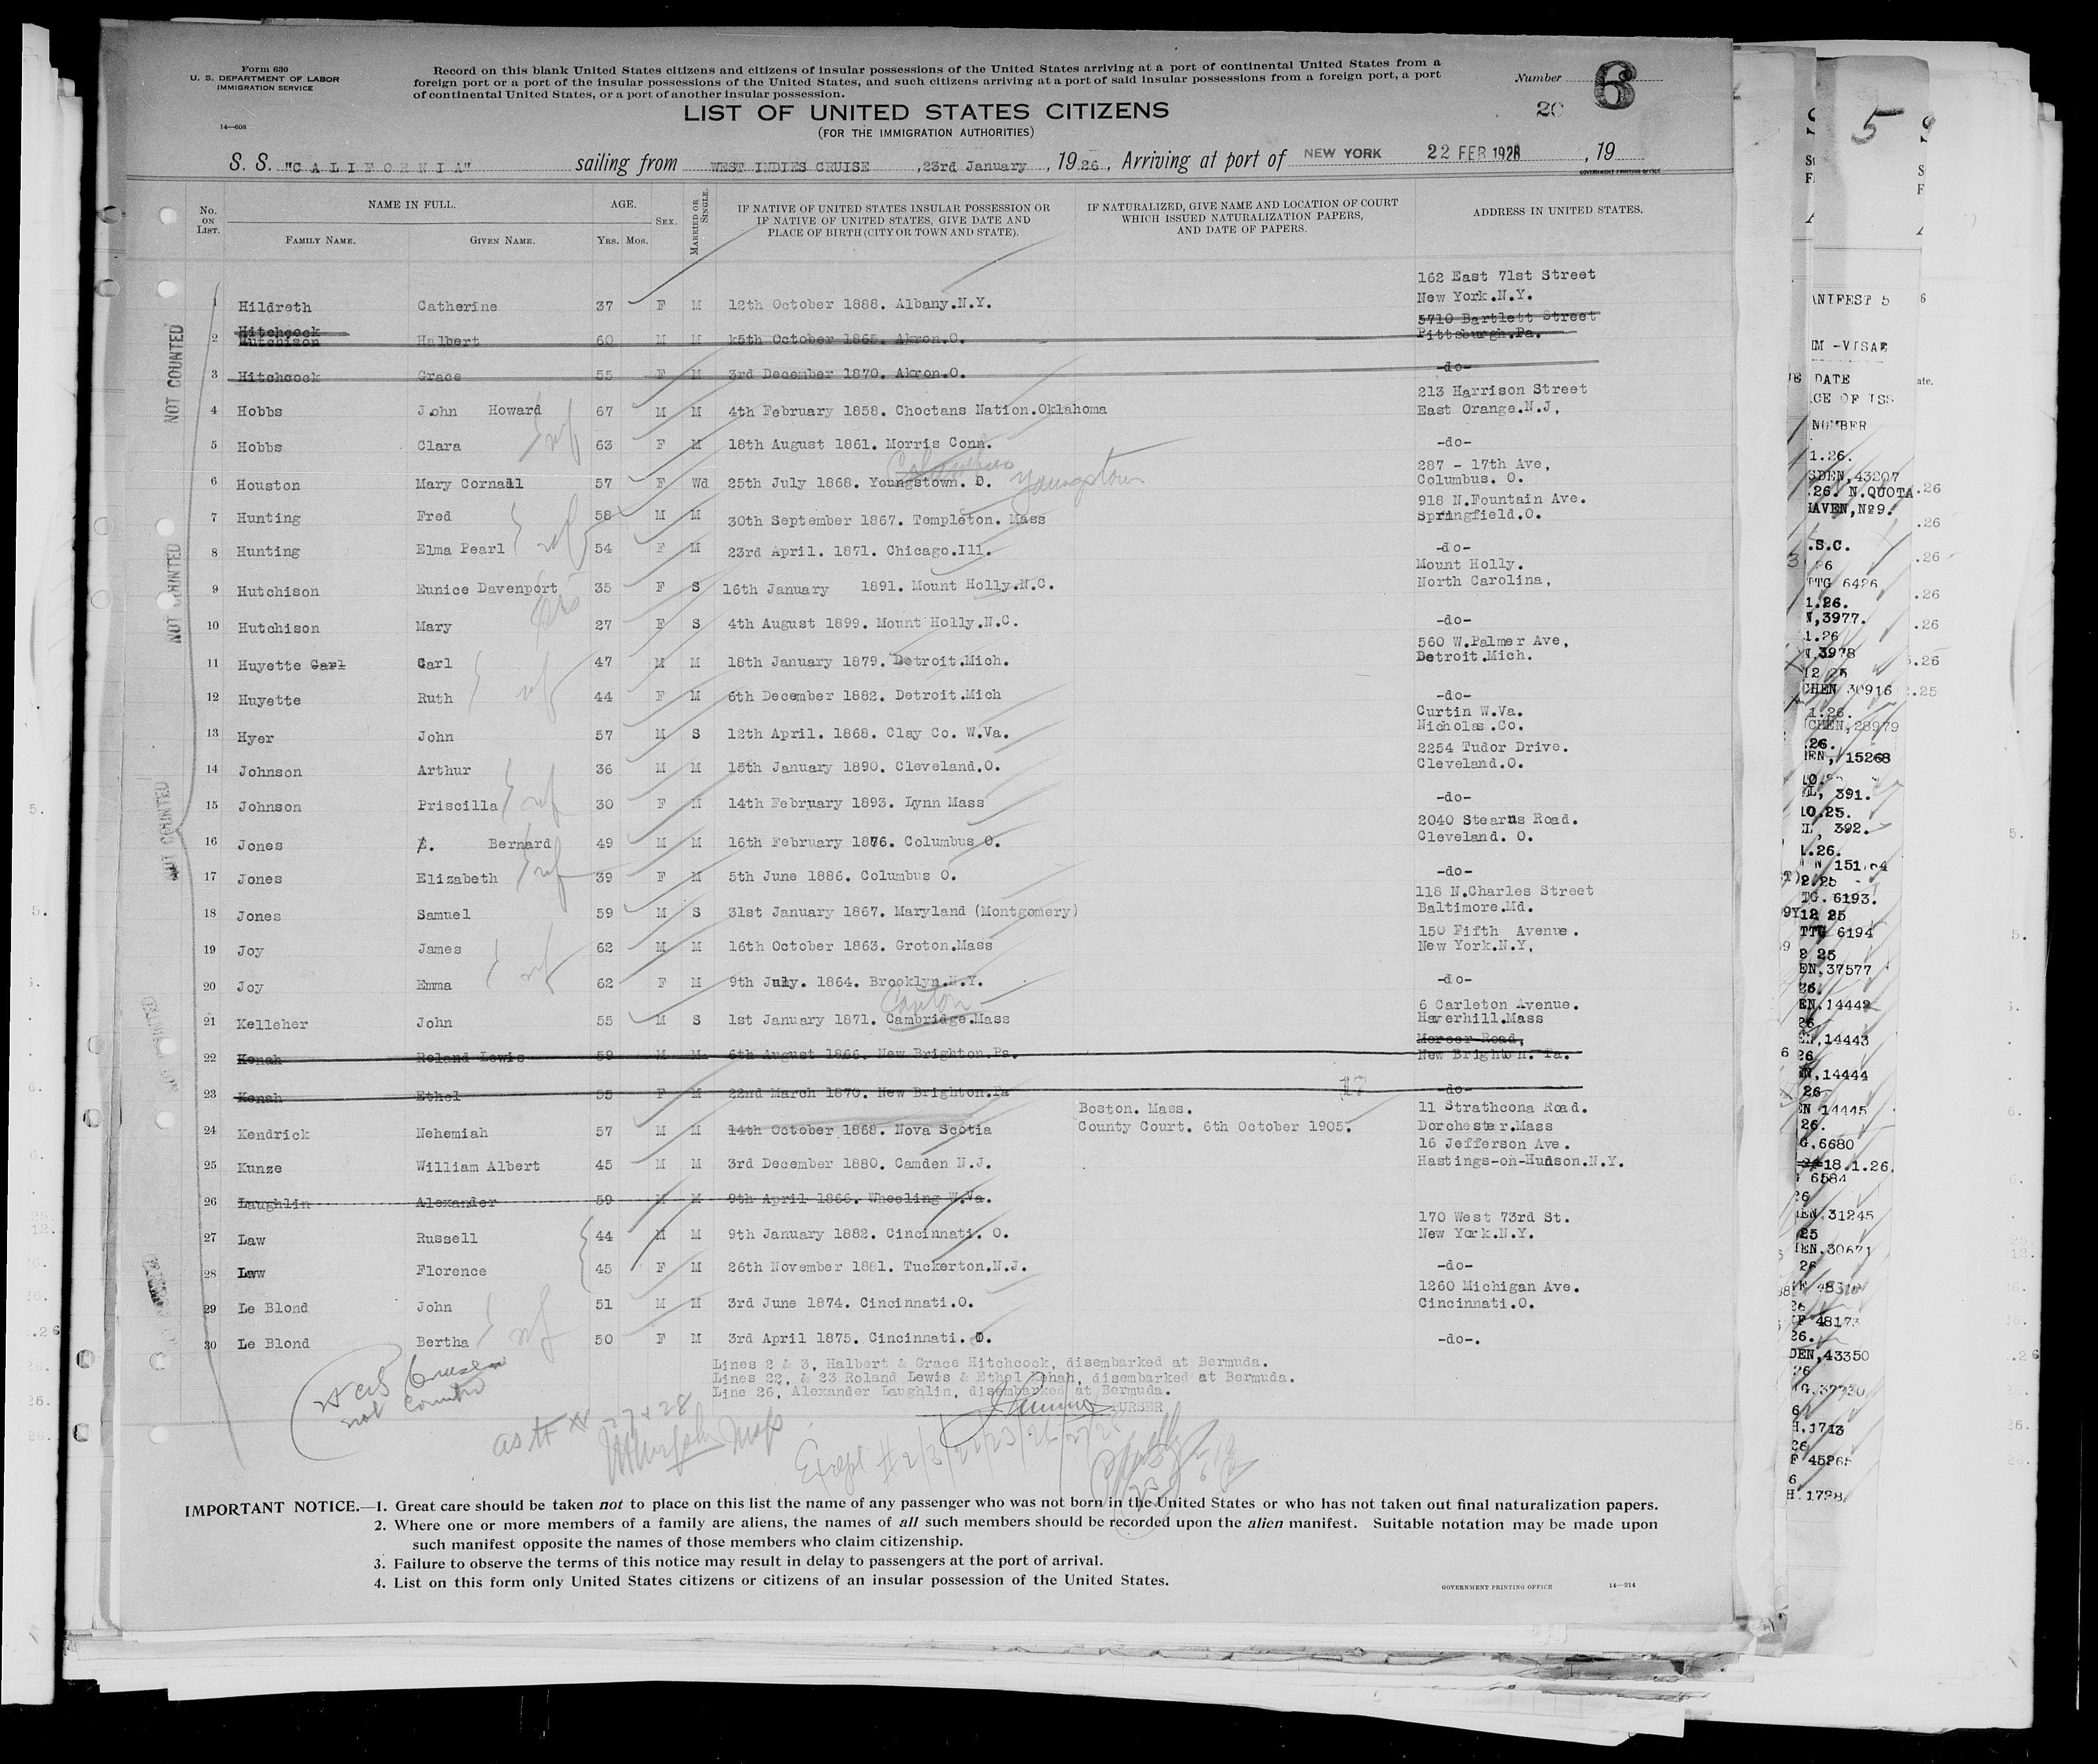 Form 630
U. S. DEPARTMENT OF LABOR
IMMIGRATION SERVICE
14—608
Record on this blank United States citizens and citizens of insular possessions of the United States arriving at a port of continental United States from a
foreign port or a port of the insular possessions of the United States, and such citizens arriving at a port of said insular possessions from a foreign port, a port
of continental United States, or a port of another insular possession.
Number 6
20
LIST OF UNITED STATES CITIZENS
(FOR THE IMMIGRATION AUTHORITIES)
S. S. "CALIFORNIA" sailing from WEST INDIES CRUISE ,23rd January , 1926, Arriving at port of NEW YORK 22 FEB 1926 , 19
GOVERNMENT PRINTING OFFICE
No. ON LIST. NAME IN FULL. FAMILY NAME. GIVEN NAME. AGE. YRS. MOS. SEX. MARRIED OR SINGLE. IF NATIVE OF UNITED STATES INSULAR POSSESSION OR IF NATIVE OF UNITED STATES, GIVE DATE AND PLACE OF BIRTH (CITY OR TOWN AND STATE). IF NATURALIZED, GIVE NAME AND LOCATION OF COURT WHICH ISSUED NATURALIZATION PAPERS, AND DATE OF PAPERS. ADDRESS IN UNITED STATES.
162 East 71st Street
1 Hildreth Catherine 37 F M 12th October 1888. Albany.N.Y. New York.N.Y.
Hitchcock 5710 Bartlett Street
2 Hutchison Halbert 60 M M 15th October 1865. Akron.O. Pittsburgh.Pa.
3 Hitchcock Grace 55 F M 3rd December 1870. Akron.O. -do-
213 Harrison Street
4 Hobbs John Howard 67 M M 4th February 1858. Choctans Nation.Oklahoma East Orange.N.J,
5 Hobbs Clara 63 F M 18th August 1861. Morris Conn. -do-
Columbus 287 - 17th Ave,
6 Houston Mary Cornall 57 F Wd 25th July 1868. Youngstown. O. Youngstown Columbus. O.
918 N.Fountain Ave.
7 Hunting Fred 58 M M 30th September 1867. Templeton. Mass Springfield.O.
8 Hunting Elma Pearl 54 F M 23rd April. 1871. Chicago.Ill. -do-
Mount Holly.
9 Hutchison Eunice Davenport 35 F S 16th January 1891. Mount Holly.N.C. North Carolina,
10 Hutchison Mary 27 F S 4th August 1899. Mount Holly.N.C. -do-
560 W.Palmer Ave,
11 Huyette Carl Carl 47 M M 18th January 1879. Detroit.Mich. Detroit.Mich.
12 Huyette Ruth 44 F M 6th December 1882. Detroit.Mich -do-
Curtin W.Va.
13 Hyer John 57 M S 12th April. 1868. Clay Co. W.Va. Nicholas.Co.
2254 Tudor Drive.
14 Johnson Arthur 36 M M 15th January 1890. Cleveland.O. Cleveland.O.
15 Johnson Priscilla 30 F M 14th February 1893. Lynn Mass -do-
2040 Stearns Road.
16 Jones Bernard 49 M M 16th February 1876. Columbus O. Cleveland. O.
17 Jones Elizabeth 39 F M 5th June 1886. Columbus O. -do-
118 N.Charles Street
18 Jones Samuel 59 M S 31st January 1867. Maryland (Montgomery) Baltimore.Md.
150 Fifth Avenue.
19 Joy James 62 M M 16th October 1863. Groton.Mass New York.N.Y,
20 Joy Emma 62 F M 9th July. 1864. Brooklyn.N.Y. -do-
Canton 6 Carleton Avenue.
21 Kelleher John 55 M S 1st January 1871. Cambridge.Mass Haverhill.Mass
Mercer Road,
22 Kenah Roland Lewis 59 M M 6th August 1866. New Brighton.Pa. New Brighton. Pa.
23 Kenah Ethel 55 F M 22nd March 1870. New Brighton.Pa 17 -do-
Boston. Mass. 11 Strathcona Road.
24 Kendrick Nehemiah 57 M M 14th October 1868. Nova Scotia County Court. 6th October 1905. Dorchester.Mass
16 Jefferson Ave.
25 Kunze William Albert 45 M M 3rd December 1880. Camden N.J. Hastings-on-Hudson.N.Y.
26 Laughlin Alexander 59 M M 9th April 1866. Wheeling W.Va.
170 West 73rd St.
27 Law Russell 44 M M 9th January 1882. Cincinnati. O. New York.N.Y.
28 Law Florence 45 F M 26th November 1881. Tuckerton.N.J. -do-
1260 Michigan Ave.
29 Le Blond John 51 M M 3rd June 1874. Cincinnati.O. Cincinnati.O.
30 Le Blond Bertha 50 F M 3rd April 1875. Cincinnati. O. -do-.
NOT COUNTED
NOT COUNTED
NOT COUNTED
Lines 2 & 3, Halbert & Grace Hitchcock, disembarked at Bermuda.
Lines 22, & 23 Roland Lewis & Ethel Kenah, disembarked at Bermuda.
Line 26, Alexander Laughlin, disembarked at Bermuda.
PURSER
not counted
as to # 27 & 28
Except # 2/3/22/23/26/27/28
IMPORTANT NOTICE.—1. Great care should be taken not to place on this list the name of any passenger who was not born in the United States or who has not taken out final naturalization papers.
2. Where one or more members of a family are aliens, the names of all such members should be recorded upon the alien manifest. Suitable notation may be made upon
such manifest opposite the names of those members who claim citizenship.
3. Failure to observe the terms of this notice may result in delay to passengers at the port of arrival.
4. List on this form only United States citizens or citizens of an insular possession of the United States.
GOVERNMENT PRINTING OFFICE 14—214
5